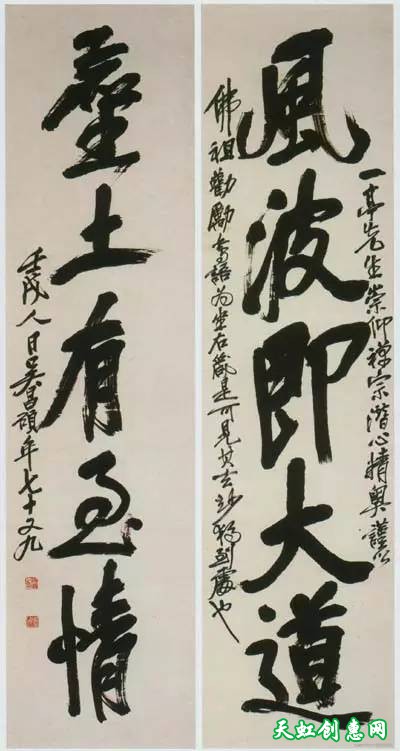 風波即大道
一亭先生崇仰禪宗潛心精奧謹以
佛祖勸勵書語為坐右箴是可見其玄妙獨到處也
塵土有至情
壬戌人日吳昌碩年七十又九
天虹创意网